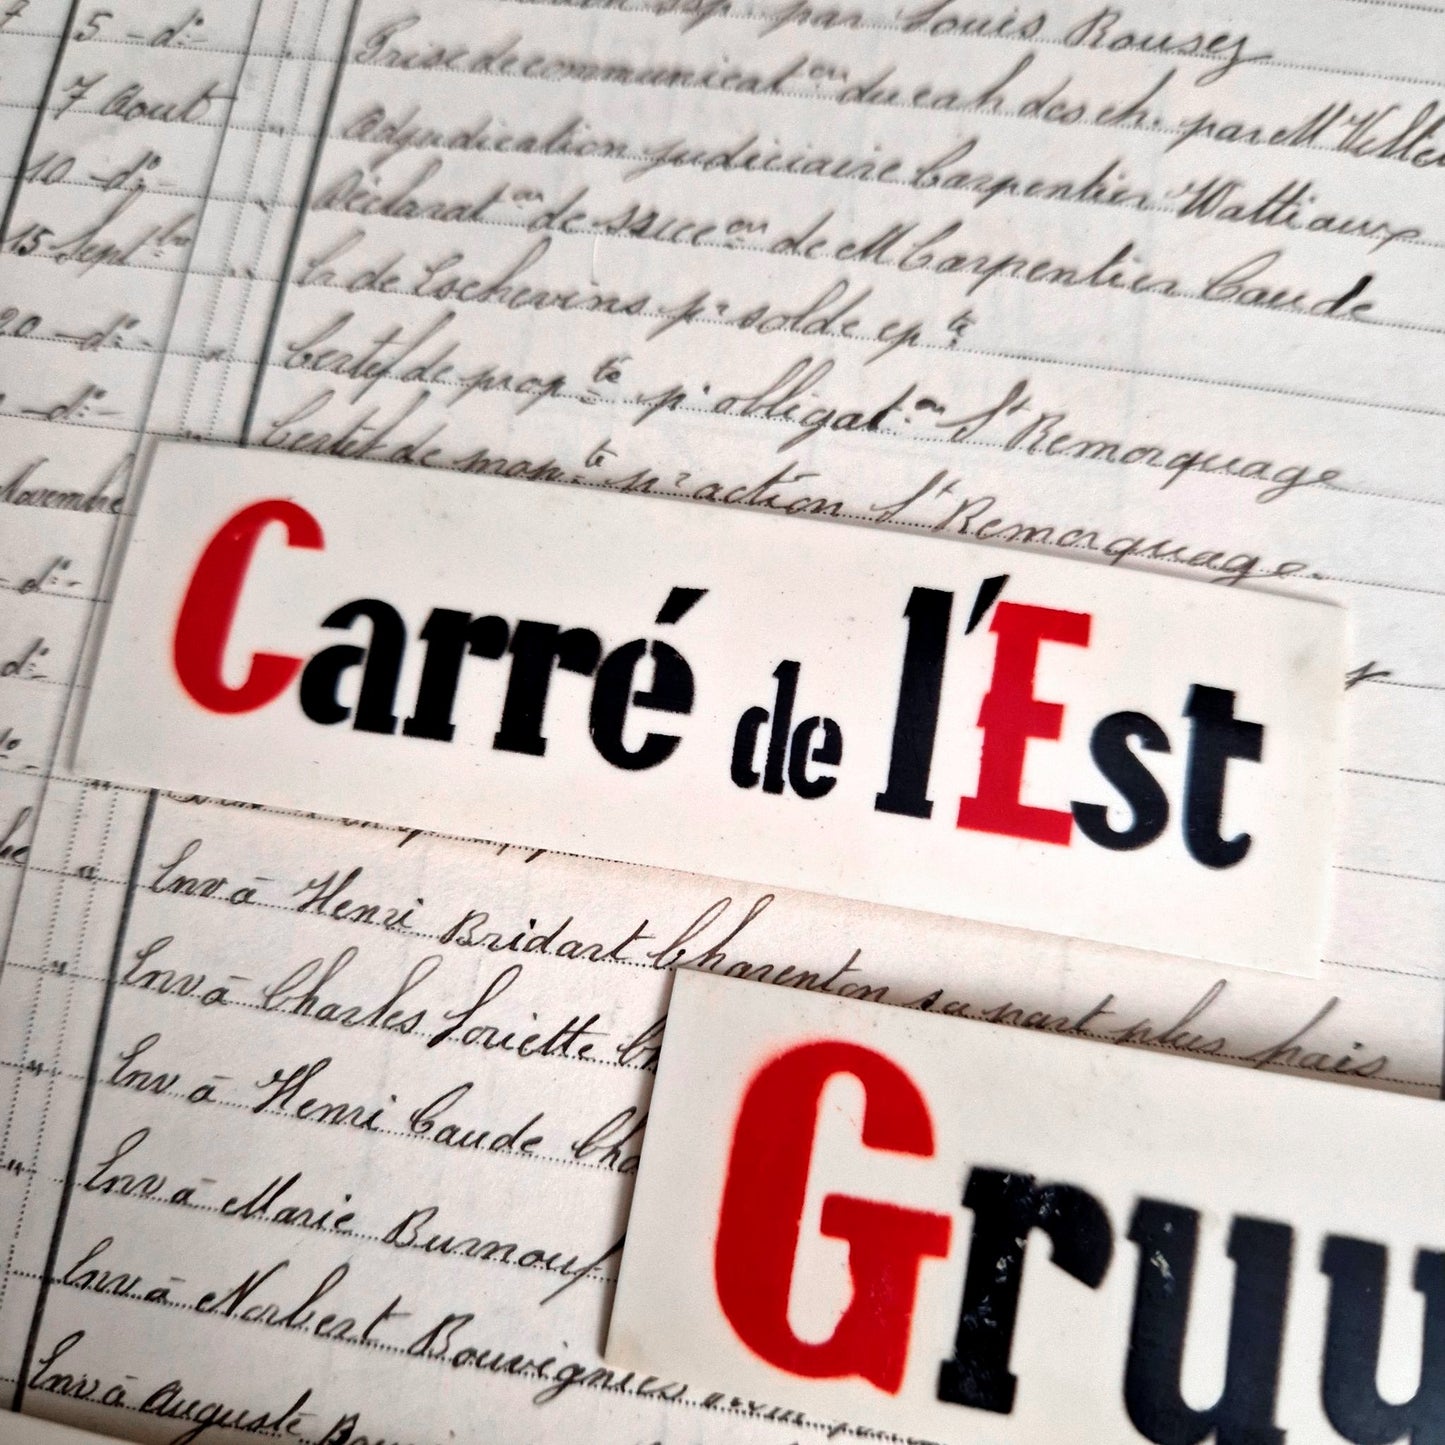 par Louis Rousez
5 - d° -
Prise de communicat on du cah des ch. par M
7 Aout " Adjudication judiciaire Carpentier Wattiaux
10 - d° - Déclarat on de succ on de M Carpentier Caude
15 Sept bre " de Lochevins pr solde ep te
20 - d° - " Certif de prop te pr obligat on St Remorquage
- d° - " Certif de prop te pr action St Remorquage.
Novembre
Carré de l'Est
- d° -
d° -
" Inv à Henri Bridart Charenton sa part plus frais
" Inv à Charles Loriette
" Inv à Henri Caude
" Inv à Marie Burnouf
Inv à Norbert Bouvignies
Inv à Auguste
Gruu